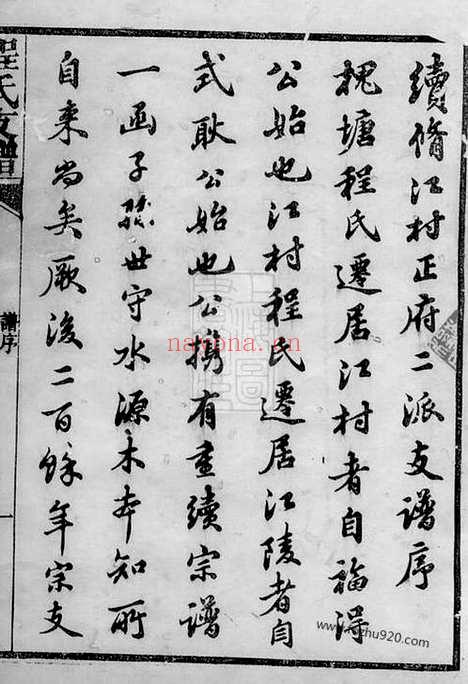 續脩江村正府二派支譜序
槐塘程氏遷居江村者自福得
公始也江村程氏遷居江陵者自
式耿公始也公携有重續宗譜
一函子孫世守水源木本知所
自来尚矣厥後二百餘年宗支
程氏支譜
譜序
nayona.cn
www.zhu920.com